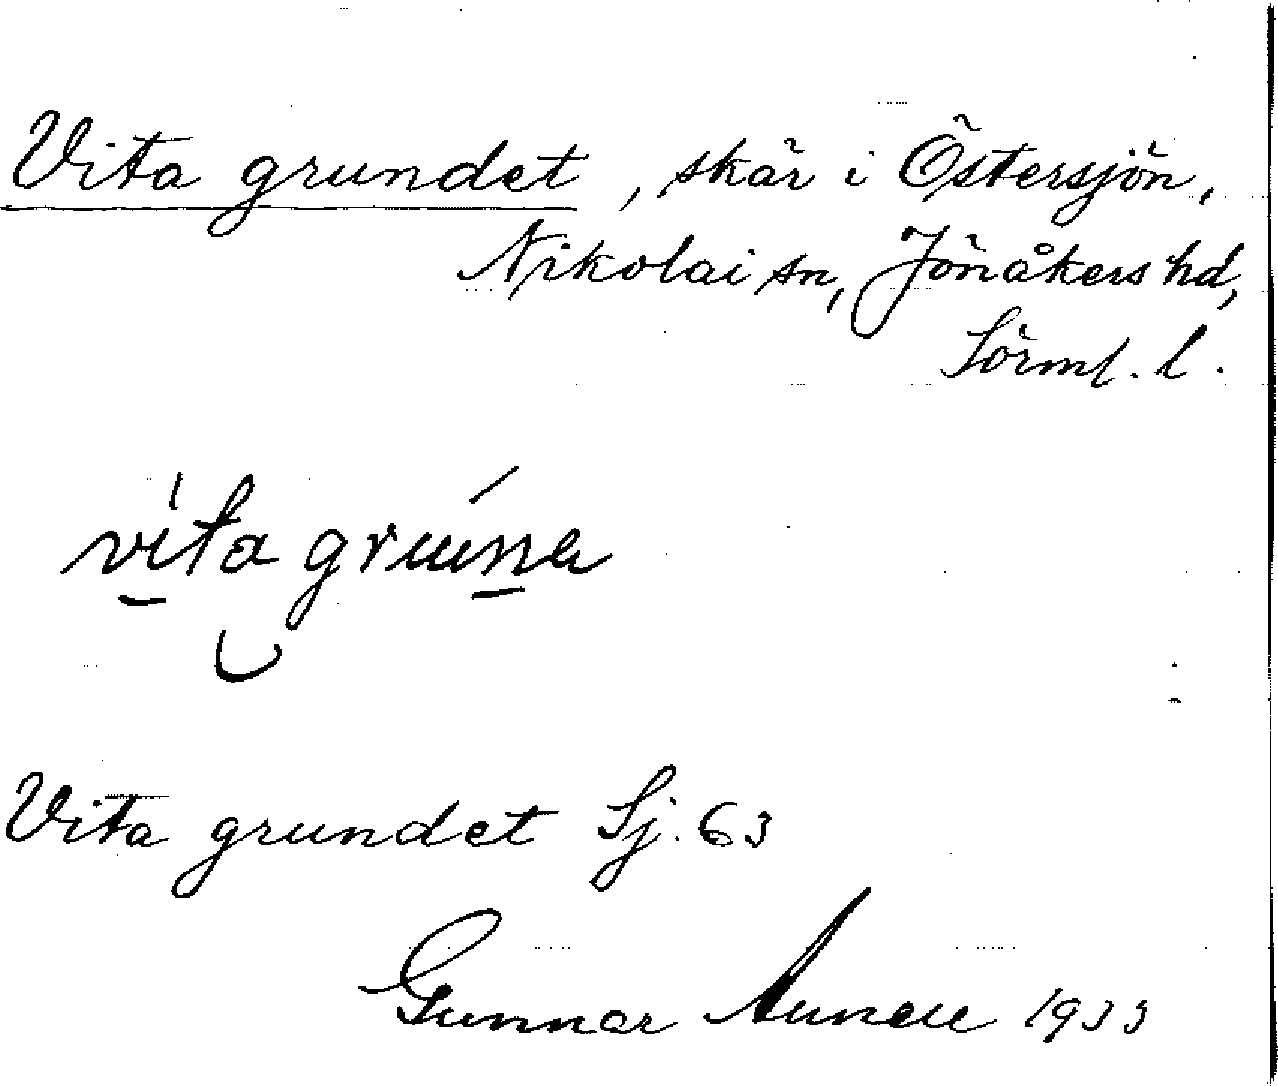 Vita grundet, skär i Östersjön,
Nikolai sn, Jönåkers hd,
Sörml. l.
vita
Vita grundet Sj. 63
Gunnar 1933